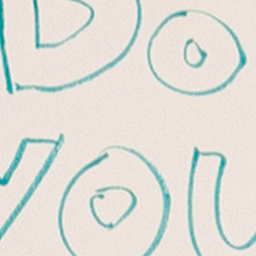 Do
YOU